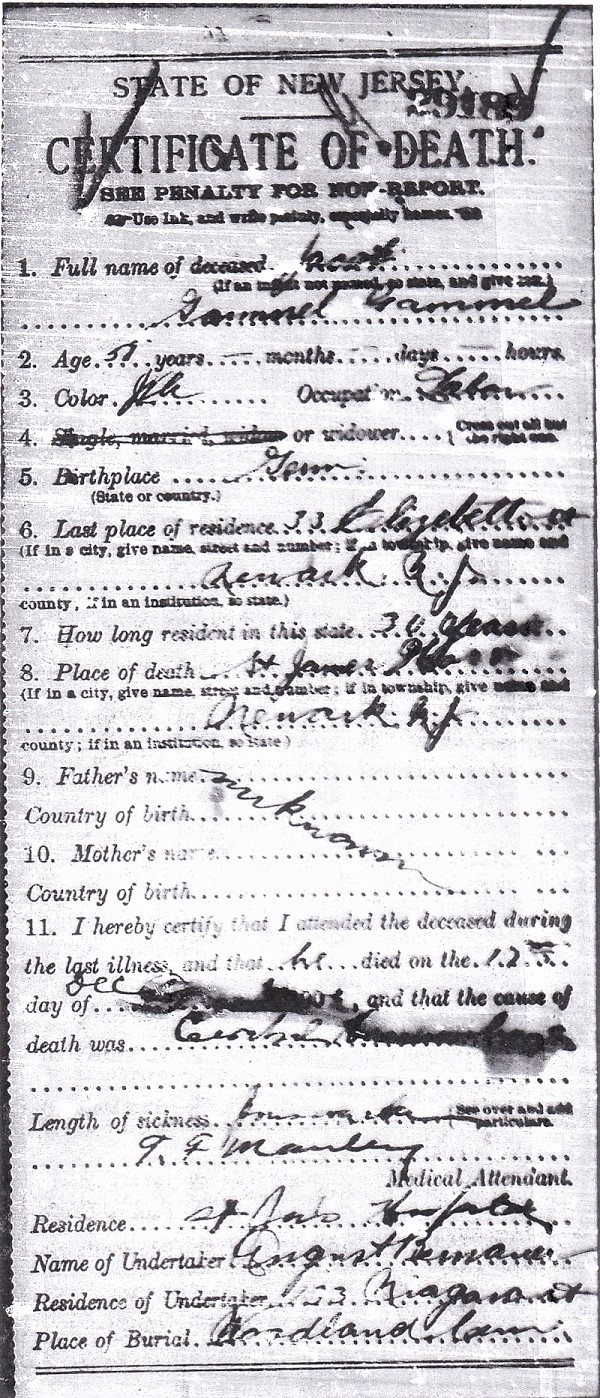 STATE OF NEW JERSEY.
29189
CERTIFICATE OF DEATH.
SEE PENALTY FOR NON-REPORT.
Use Ink, and write plainly, especially names.
1. Full name of deceased
(If an infant not named, so state, and give sex.)
Gammel
2. Age 51 years months days hours.
3. Color Wh Occupat'n Labor
4. Single, married, widow or widower (Cross out all but the right one.
5. Birthplace Germ
(State or country.)
6. Last place of residence 33 Elizabeth
(If in a city, give name, street and number; if in township, give name and
Newark N. J.
county; if in an institution, so state.)
7. How long resident in this state 30 years
8. Place of death St James
(If in a city, give name, street and number; if in township, give name and
Newark N. J.
county; if in an institution, so state)
9. Father's name
unknown
Country of birth
10. Mother's name
Country of birth
11. I hereby certify that I attended the deceased during
the last illness, and that he died on the 12
day of Dec, and that the cause of
death was
Length of sickness (See over and add particulars.
Medical Attendant.
Residence St
Name of Undertaker August
Residence of Undertaker Niagara st
Place of Burial Woodland Cem